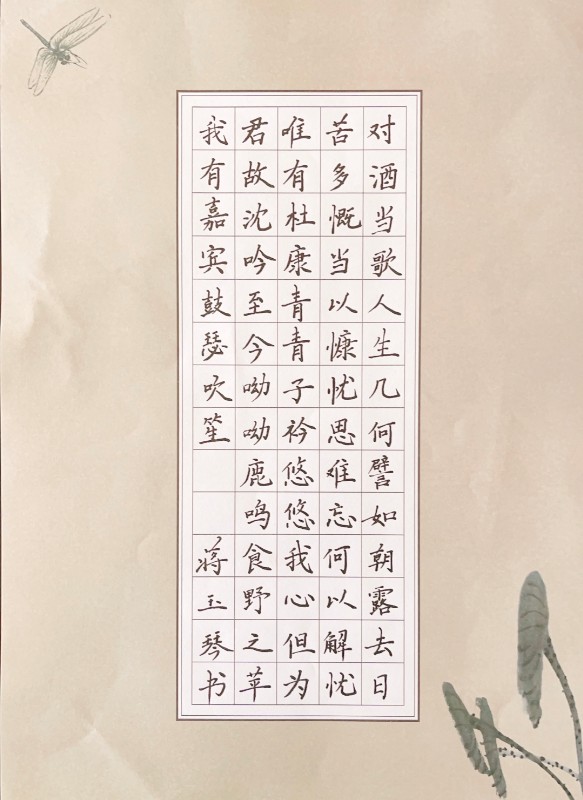 对酒当歌人生几何譬如朝露去日
苦多慨当以慷忧思难忘何以解忧
唯有杜康青青子衿悠悠我心但为
君故沈吟至今呦呦鹿鸣食野之苹
我有嘉宾鼓瑟吹笙
蒋玉琴书